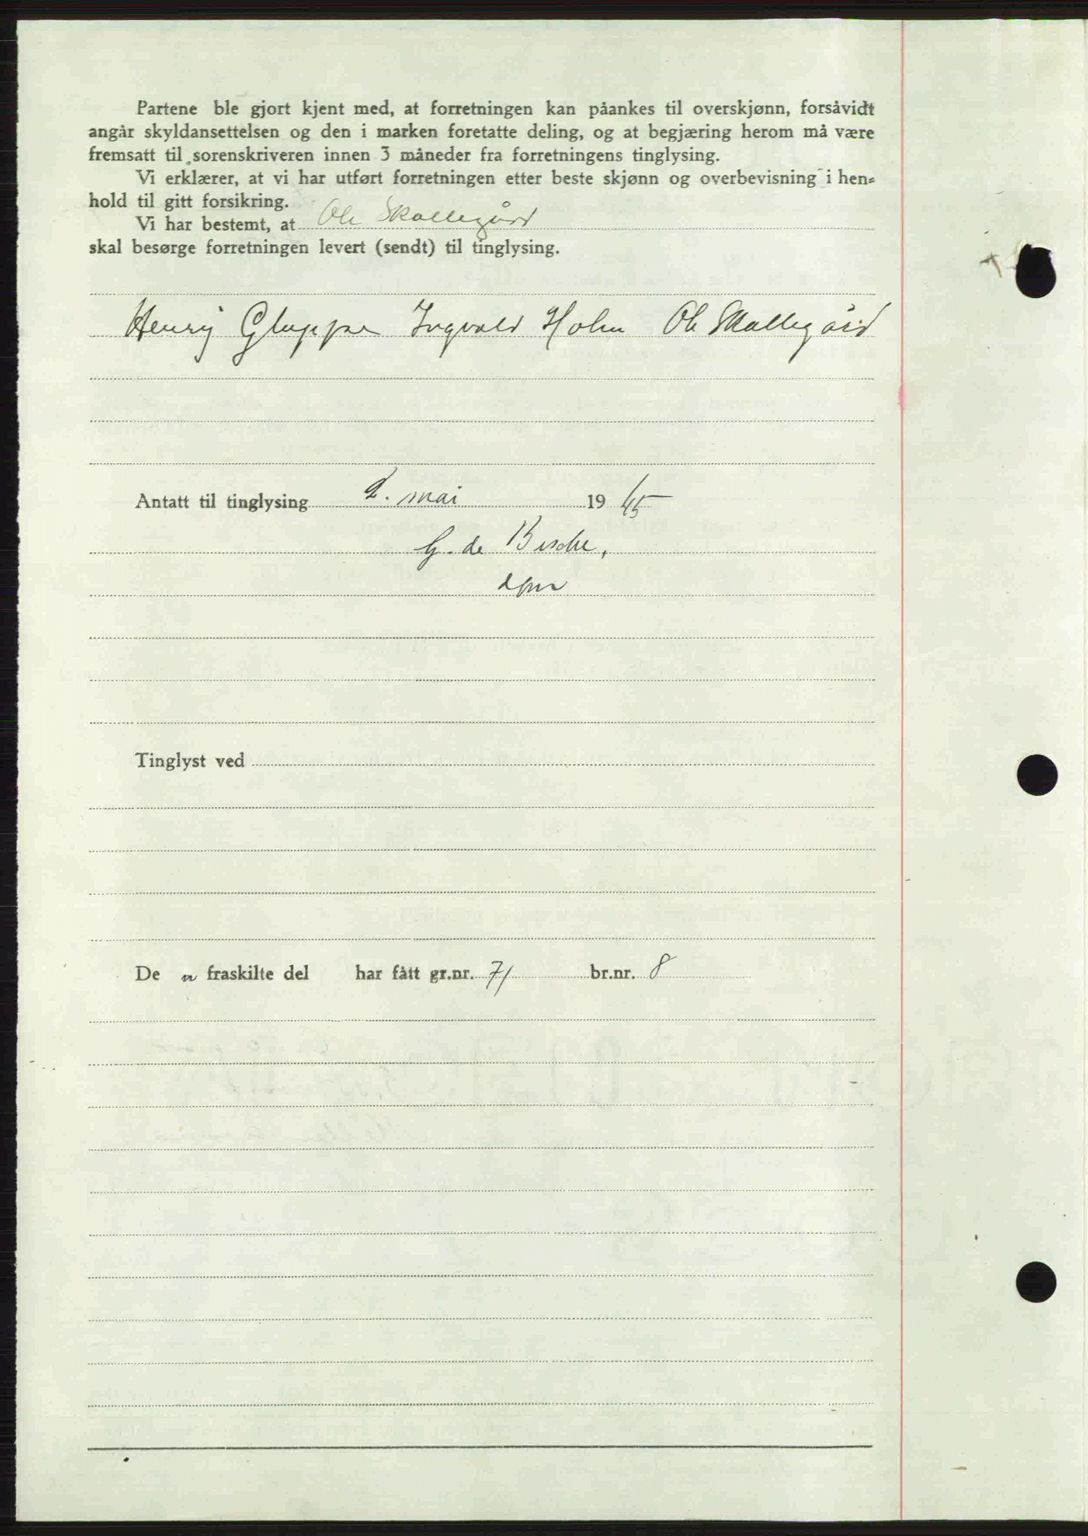 Partene ble gjort kjent med, at forretningen kan påankes til overskjønn, forsåvidt
angår skyldansettelsen og den i marken foretatte deling, og at begjæring herom må være
fremsatt til sorenskriveren innen 3 måneder fra forretningens tinglysing.
Vi erklærer, at vi har utført forretningen etter beste skjønn og overbevisning i hen=
hold til gitt forsikring.
Vi har bestemt, at Ole Skallegård
skal besørge forretningen levert (sendt) til tinglysing.
Henry Gluppe Ingvald Holm Ole Skallegård
Antatt til tinglysing 2. mai 1945
G. de Besche,
De n fraskilte del har fått gr.nr. 71 br.nr. 8
Tinglyst ved